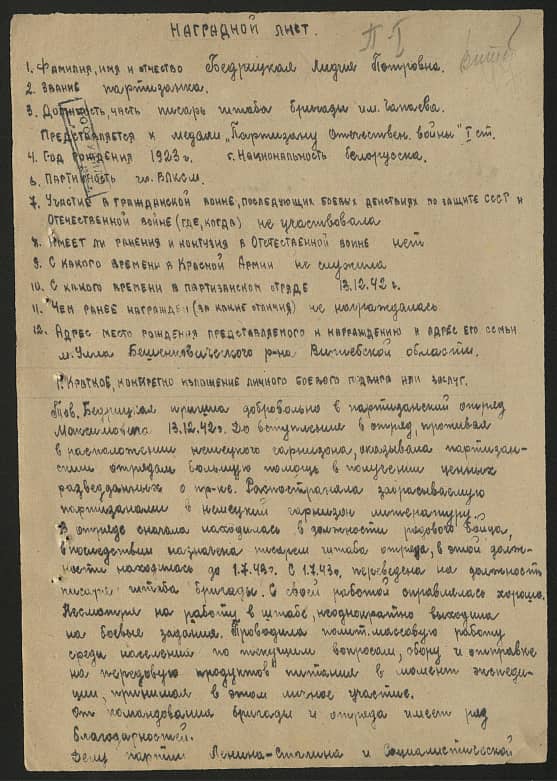 НАГРАДНОЙ ЛИСТ.
1. Фамилия, имя и отчество Бедрицкая Лидия Петровна.
2. Звание партизанка.
3. Должность, часть писарь штаба бригады им. Чапаева.
Представляется к медали „Партизану Отечествен. войны" I ст.
4. Год рождения 1923 г. г. Национальность белорусска.
6. Партийность чл. ВЛКСМ.
7. Участие в гражданской войне, последующих боевых действиях по защите СССР и
Отечественной войне (где, когда) не участвовала
8. Имеет ли ранения и контузия в Отечественной войне нет
9. С какого времени в Красной Армии не служила
10. С какого времени в партизанском отряде 13.12.42 г.
11. Чем ранее награжден (за какие отличия) не награждалась
12. Адрес место рождения представляемого к награждению и адрес его семьи
м. Улла Бешенковичского р-на Витебской области.
I. Краткое, конкретно изложение личного боевого подвига или заслуг.
Тов. Бедрицкая пришла добровольно в партизанский отряд
Максимовича 13.12.42 г. До вступления в отряд, проживая
в расположении немецкого гарнизона, оказывала партизан-
ским отрядам большую помощь в получении ценных
разведданных о пр-ке. Распостраняла забрасываемую
партизанами в немецкий гарнизон литературу.
В отряде сначала находилась в должности рядового бойца,
впоследствии назначена писарем штаба отряда, в этой долж-
ности находилась до 1.7.43 г. С 1.7.43 г. переведена на должность
писаря штаба бригады. С своей работой справлялась хорошо.
Несмотря на работу в штабе, неоднократно выходила
на боевые задания. Проводила полит. массовую работу
среди населений по текущим вопросам, сбору и отправке
на передовую продуктов питания в момент экспеди-
ции, принимая в этом личное участие.
От командования бригады и отряда имеет ряд
благодарностей.
Делу партии Ленина-Сталина и Социалистической